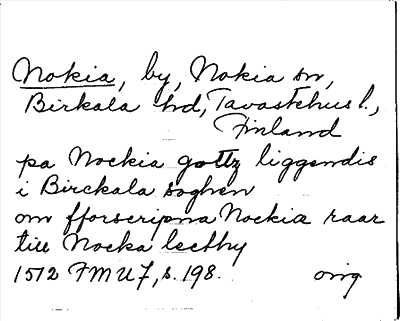 Nokia, by, Nokia sn,
Birkala hd, Tavastehus l.,
Finland
pa Nockia gottz liggendis
i Birckala soghen
om fforscripna Nockia raar
till Nocka lecthy
1512 FMU 7, s. 198. orig